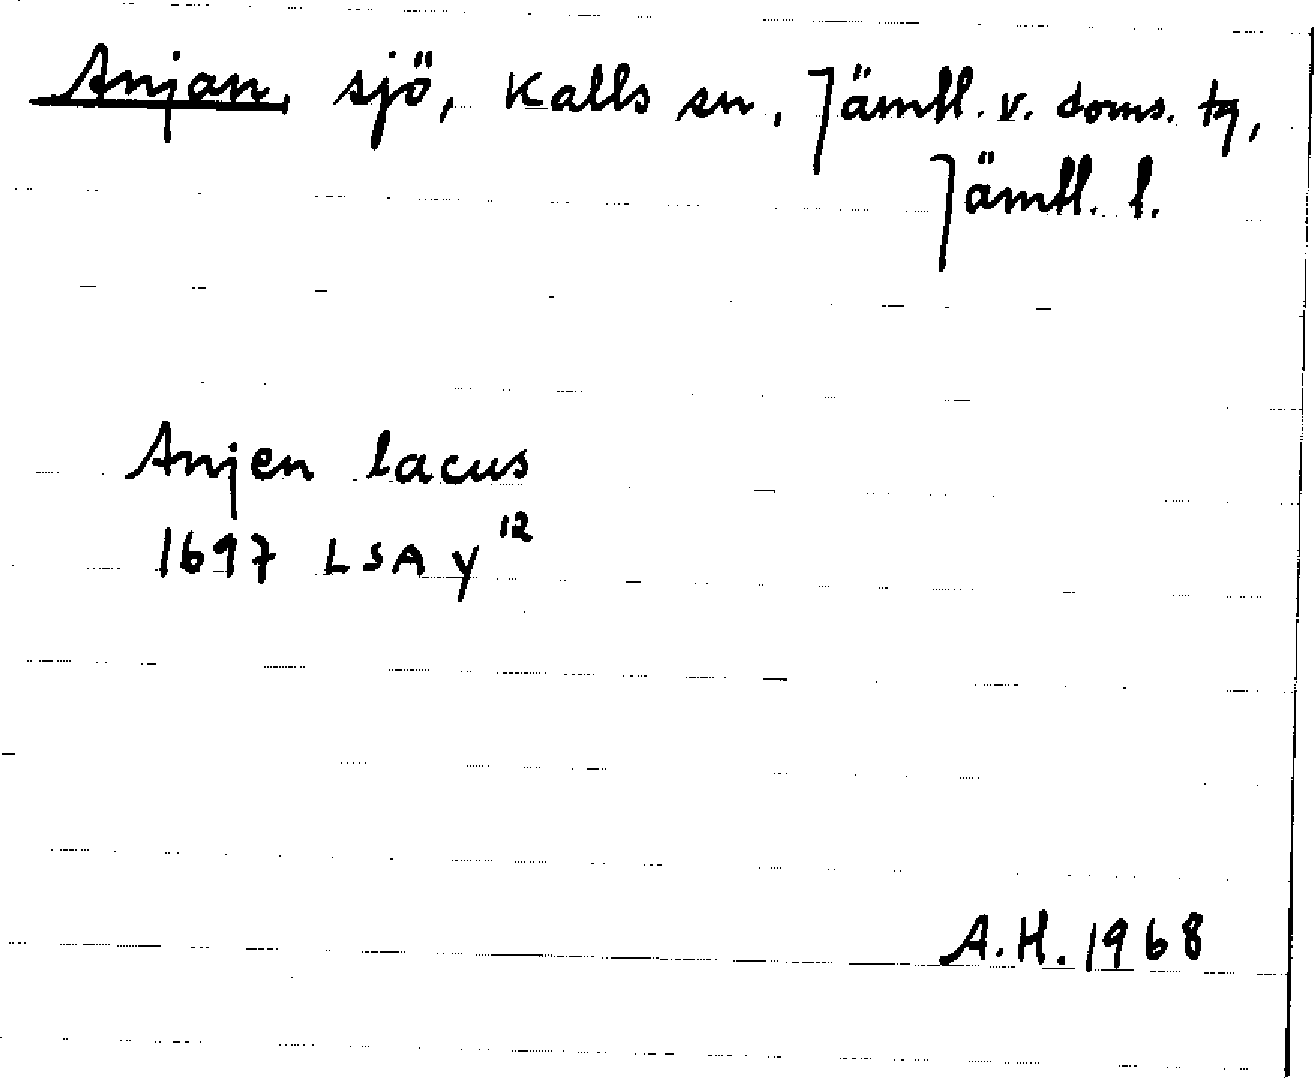 Anjan, sjö, Kalls sn, Jämtl. v. doms. tg,
Jämtl. l.
Anjen lacus
1697 LSA Y¹²
A.H. 1968